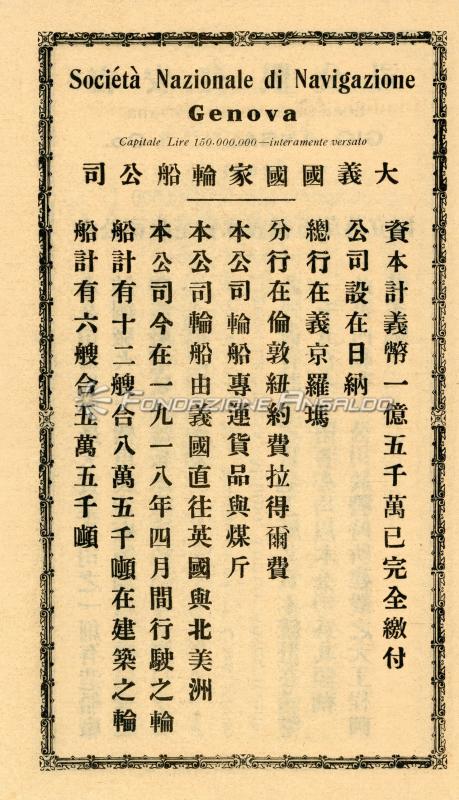 Societá Nazionale di Navigazione
Genova
Capitale Lire 150.000.000—interamente versato
大義國國家輪船公司
資本計義幣一億五千萬已完全繳付
公司設在日納
總行在義京羅瑪
分行在倫敦紐約費拉得爾費
本公司輪船專運貨品與煤斤
本公司輪船由義國直往英國與北美洲
本公司今在一九一八年四月間行駛之輪
船計有十二艘合八萬五千噸在建築之輪
船計有六艘合五萬五千噸
FONDAZIONE ANSALDO